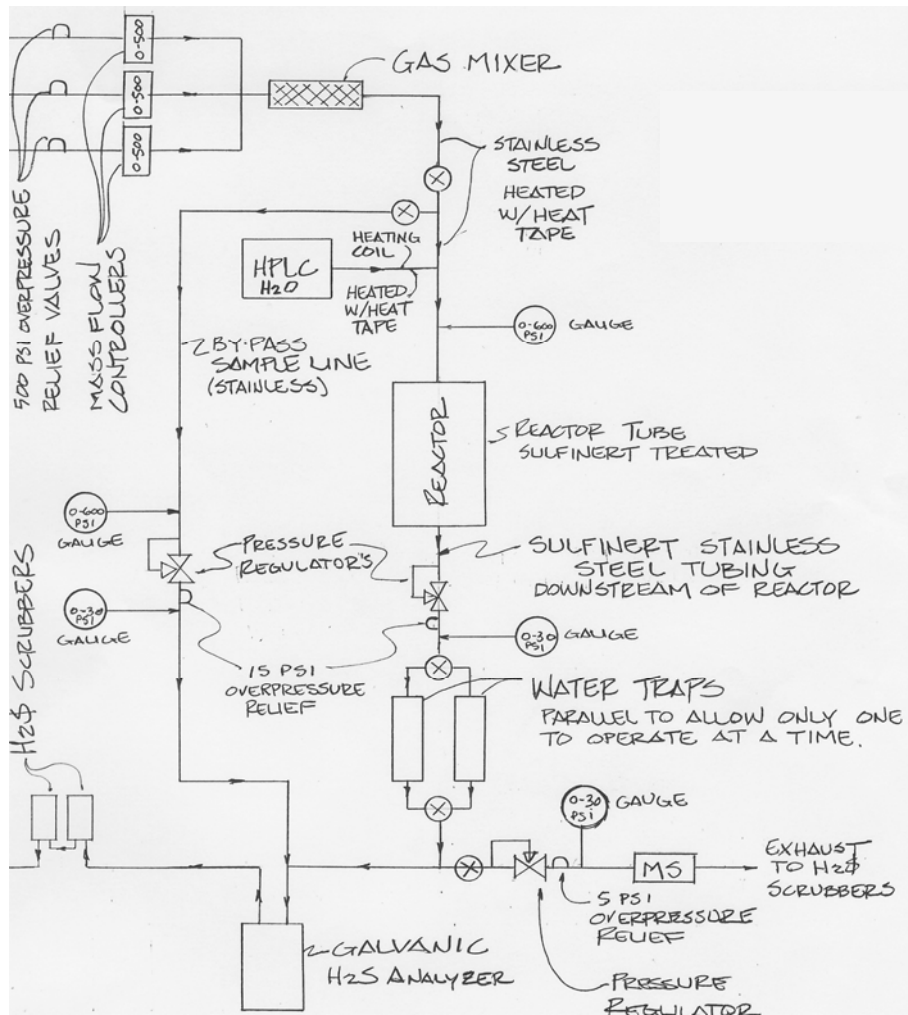 0-500
0-500
0-500
GAS MIXER
500 PSI OVERPRESSURE
RELIEF VALVES
MASS FLOW
CONTROLLERS
STAINLESS
STEEL
HEATED
W/HEAT
TAPE
HEATING
COIL
HPLC
H2O
HEATED
W/HEAT
TAPE
0-600
PSI
GAUGE
BY-PASS
SAMPLE LINE
(STAINLESS)
REACTOR
REACTOR TUBE
SULFINERT TREATED
0-600
PSI
GAUGE
PRESSURE
REGULATOR'S
SULFINERT STAINLESS
STEEL TUBING
DOWNSTREAM OF REACTOR
0-30
PSI
GAUGE
0-30
PSI
GAUGE
15 PSI
OVERPRESSURE
RELIEF
H2S SCRUBBERS
WATER TRAPS
PARALLEL TO ALLOW ONLY ONE
TO OPERATE AT A TIME.
0-30
PSI
GAUGE
MS
EXHAUST
TO H2S
SCRUBBERS
5 PSI
OVERPRESSURE
RELIEF
GALVANIC
H2S ANALYZER
PRESSURE
REGULATOR